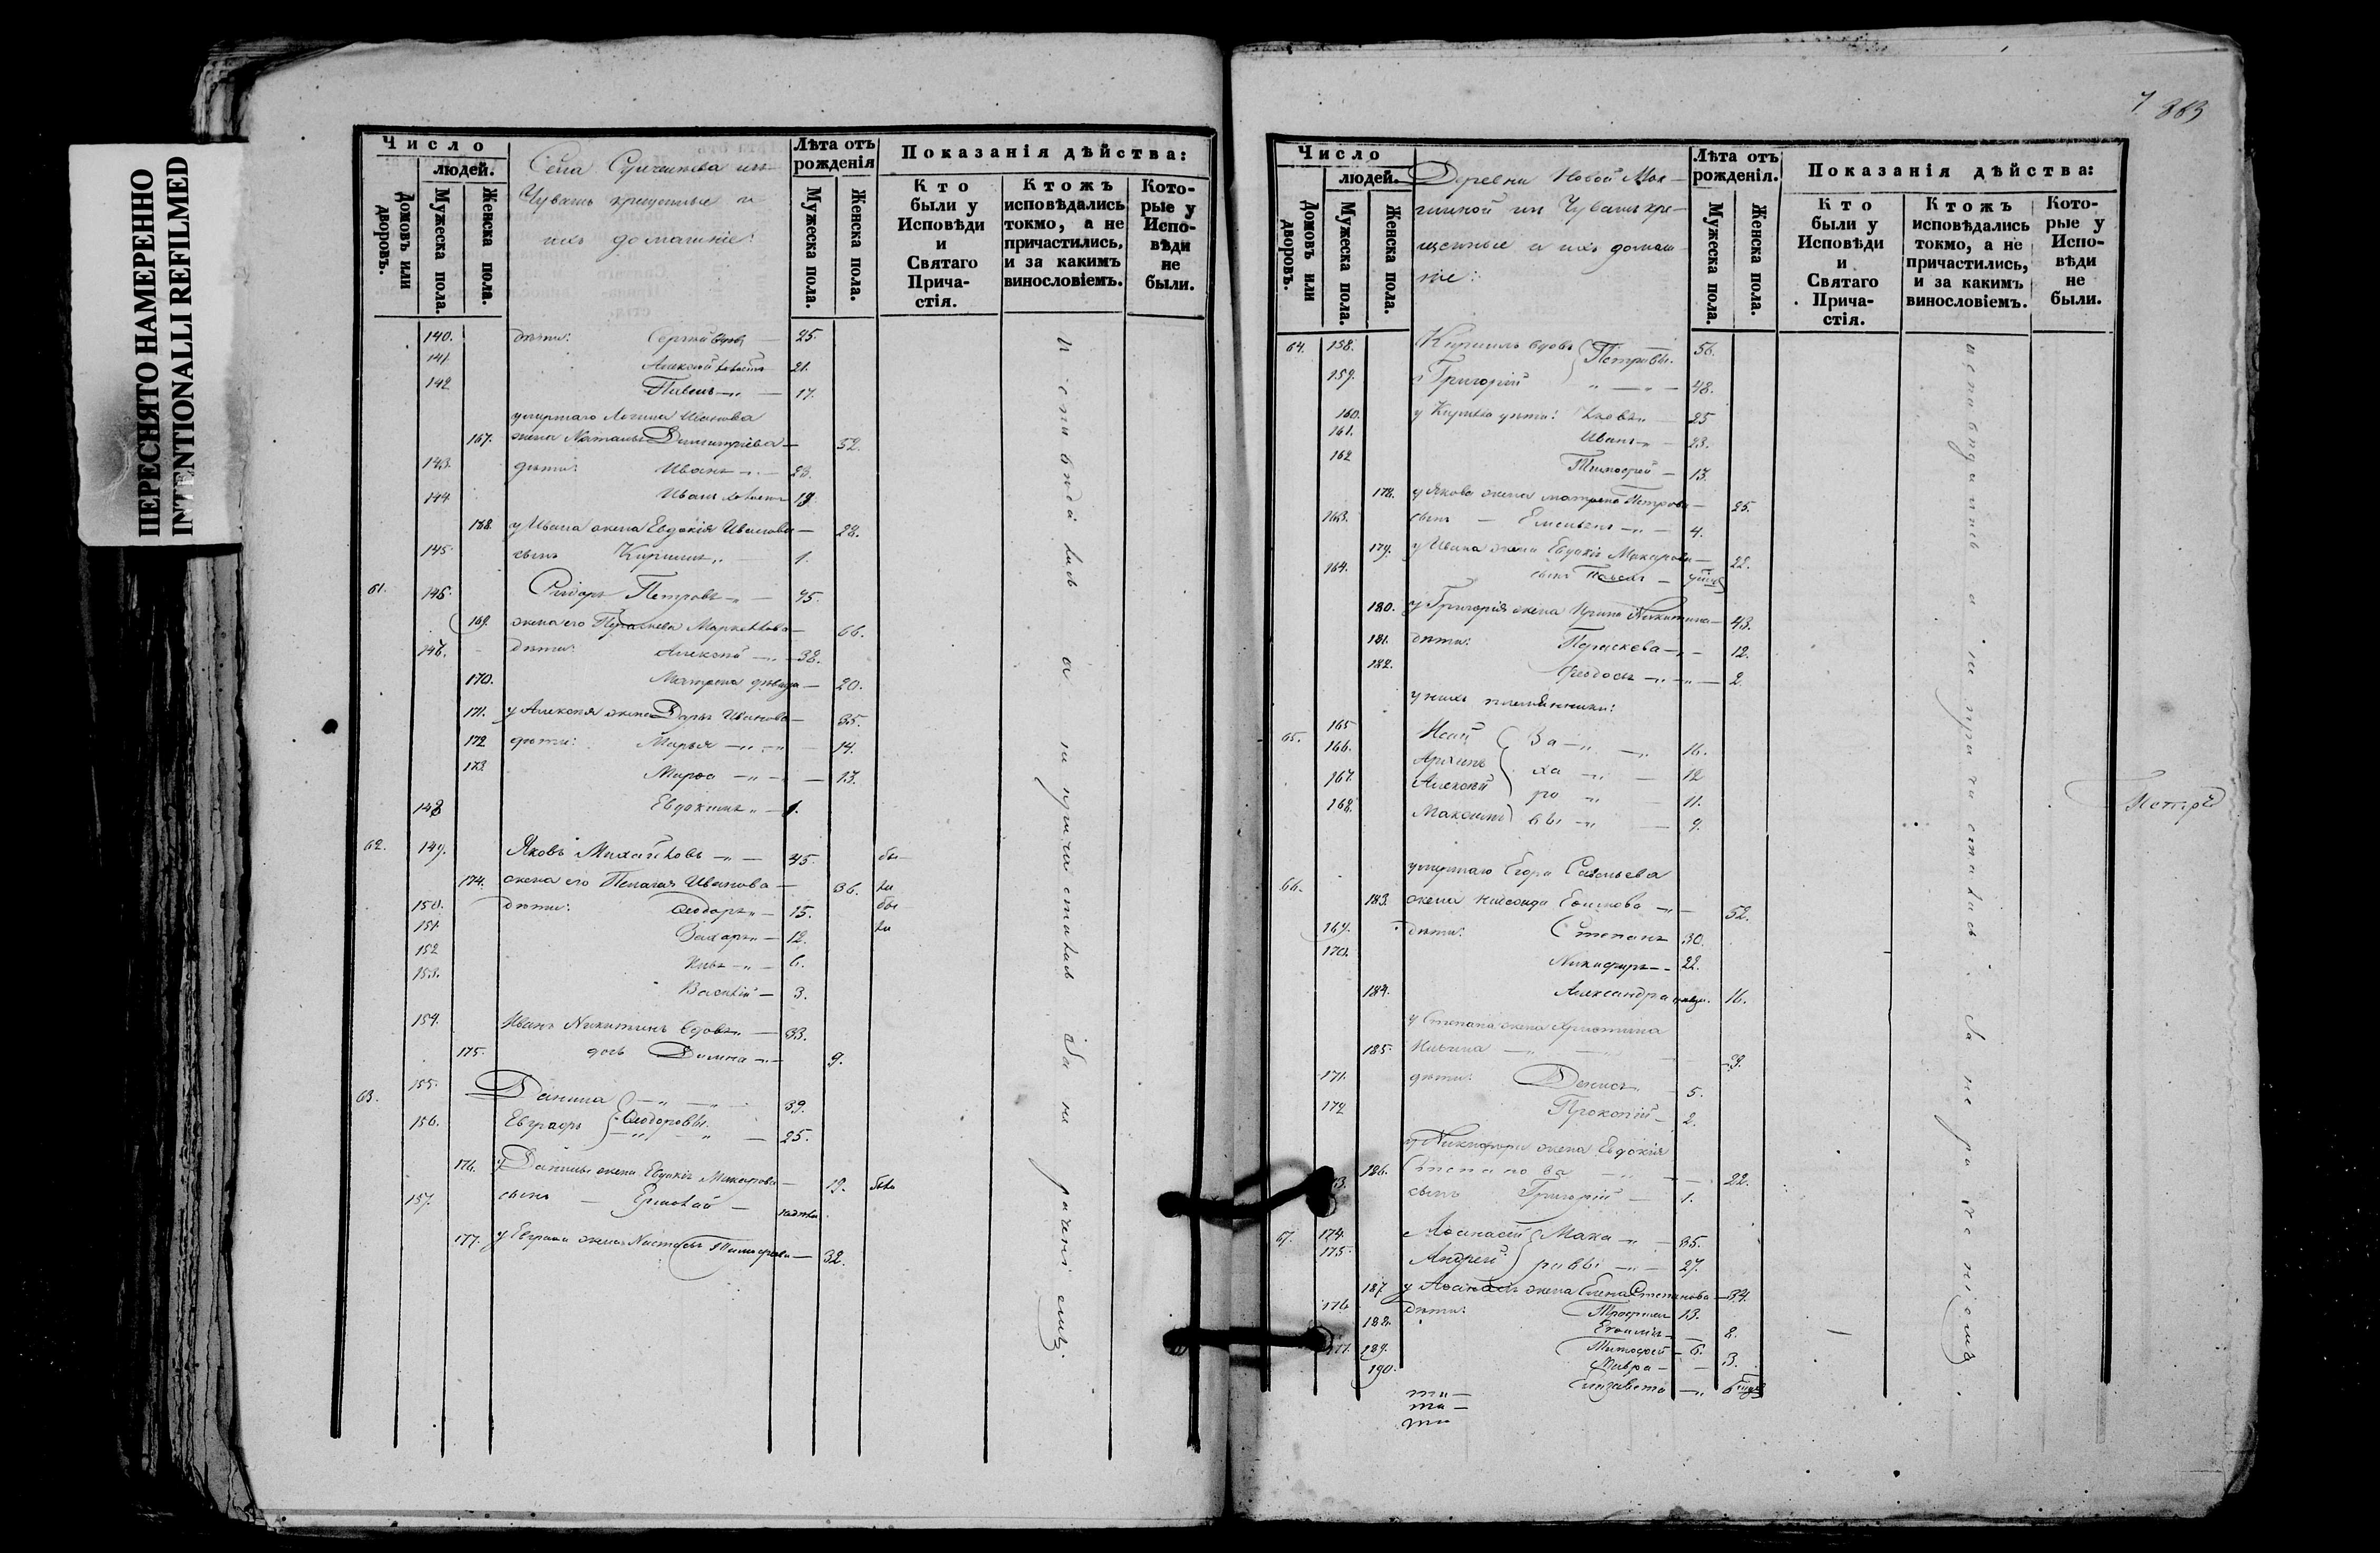 ПЕРЕСНЯТО НАМЕРЕННО
INTENTIONALLI REFILMED
Число
людей.
Домовъ или дворовъ.
Мужеска пола.
Женска пола.
Села
Чувашъ крещенные и
ихъ домашніе:
Лѣта отъ рожденія
Мужеска пола.
Женска пола.
Показанія дѣйства:
Кто были у Исповѣди и Святаго Прича-стія.
Ктожъ исповѣдались токмо, а не причастились, и за какимъ винословіемъ.
Кото-рые у Испо-вѣди не были.
140. дѣти: Сергѣй вдовъ 25.
141. Алексѣй холостъ 21.
142 Павелъ 17.
умершаго Логина Иванова
167. жена Наталья Димитріева 52.
143. дѣти: Иванъ 23.
144 Иванъ холостъ 19.
168. у Ивана жена Евдокія Иванова 28.
145. сынъ Кириллъ 1.
61. 146. Ѳедоръ Петровъ 75.
169. жена его Маркелова 66.
146. дѣти: Алексѣй 38.
170. Матрена дѣвица 20.
171. у Алексѣя жена Дарья Иванова 35.
172 дѣти: Марья 14.
173 Марѳа 13.
148 Евдокимъ 1.
62. 149. Яковъ Михайловъ 45. бы
174. жена его Пелагія Иванова 36. ли
150. дѣти: Ѳеодоръ 15. бы
151 Захаръ 12. ли
152 6.
153. Василій 3.
154. Иванъ Никитинъ вдовъ 33.
175. дочь Домна 9.
63. 155. Данила 39.
156. Евграфъ Ѳеодоровы 25.
176. у Данилы жена Евдокія Макарова 19. были
157. сынъ Ермолай
177. у Евграфа жена Настасья Тимофеева 32.
исповѣдались а не причастились за нераченіемъ.
863
Число
людей.
Домовъ или дворовъ.
Мужеска пола.
Женска пола.
Деревни Новой Мок-
шиной изъ Чувашъ кре-
щенные и ихъ домаш-
ніе:
Лѣта отъ рожденія.
Мужеска пола.
Женска пола.
Показанія дѣйства:
Кто были у Исповѣди и Святаго Прича-стія.
Ктожъ исповѣдались токмо, а не причастились, и за какимъ винословіемъ.
Кото-рые у Испо-вѣди не были.
64. 158. Кириллъ вдовъ Петровы. 56.
159. Григорій 48.
160. у Кирила дѣти: Яковъ 25
161. Иванъ 23.
162 Тимофей 13.
178. у Якова жена Матрена Петрова 25.
163. сынъ Емельянъ 4.
179. у Ивана жена Евдокія Макарова 22.
164. сынъ Павелъ
180. у Григорія жена Ирина Никитина 43.
181. дѣти: Параскева 12.
182. Ѳеодосья 2.
у нихъ племянники:
65. 165 Исай За 16.
166. Архипъ ха 12
167. Алексѣй ро 11.
168. Максимъ вы 9.
умершаго Егора Савельева
66. 183. жена Ефимова 52.
169. дѣти: Степанъ 30.
170. Никифоръ 22.
184. Александра дѣвица 16.
у Степана жена Христина
185. Ильина 29.
171. дѣти: Денисъ 5.
172 Прокопій 2.
у Никифора жена Евдокія
186. Степанова 22.
сынъ Григорій 1.
67. 174. Аѳанасій Мака 35.
175. Андрей ровы 27.
187 у Аѳанасія жена Елена Степанова 34.
176 дѣти: Трофимъ 13.
188. Евфимія 8.
177. 189. Тимофей 6.
190. Мавра 3.
Елизавета
исповѣдались а не причастились за нераченіемъ.